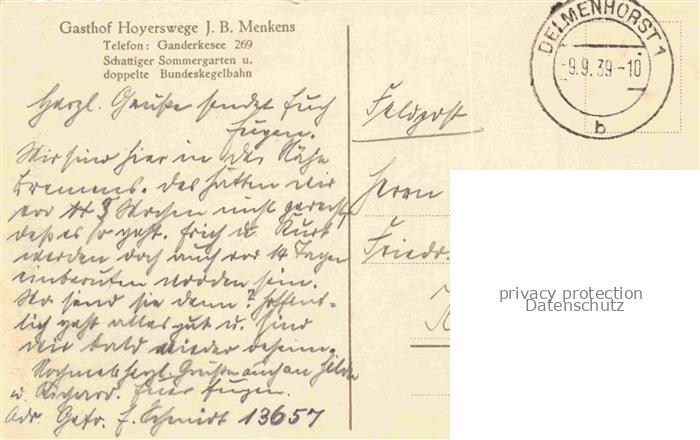 Gasthof Hoyerswege J. B. Menkens
Telefon: Ganderkesee 269
Schattiger Sommergarten u.
doppelte Bundeskegelbahn
DELMENHORST 1
-9.9.39-10
b
Herzl. Grüße sendet Euch
Eugen.
Wir sind hier in der Nähe
Bremens. Das hätten wir
vor 3 Wochen nicht gedacht,
daß es so geht. Erich u. Kurt
werden doch auch vor 14 Tagen
einberufen worden sein.
Wo sind sie denn? Hoffent-
lich geht alles gut u. sind
wir bald wieder daheim.
Nochmals herzl. Grüße auch an Hilde
u. Richard. Euer Eugen.
Adr. Gefr. E. Schmidt 13657
Feldpost
Herrn
Friedr.
privacy protection
Datenschutz